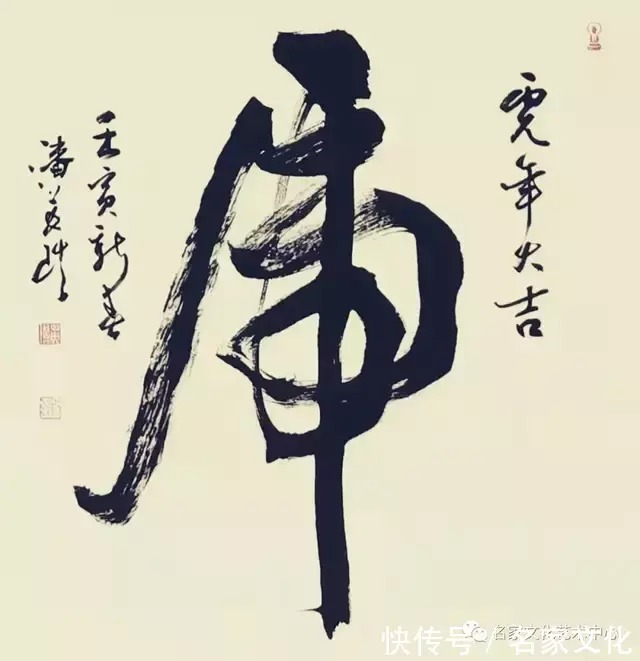 虎年大吉
虎
壬寅新春
潘善助
名家文化艺术中心
快传号 / 名家文化